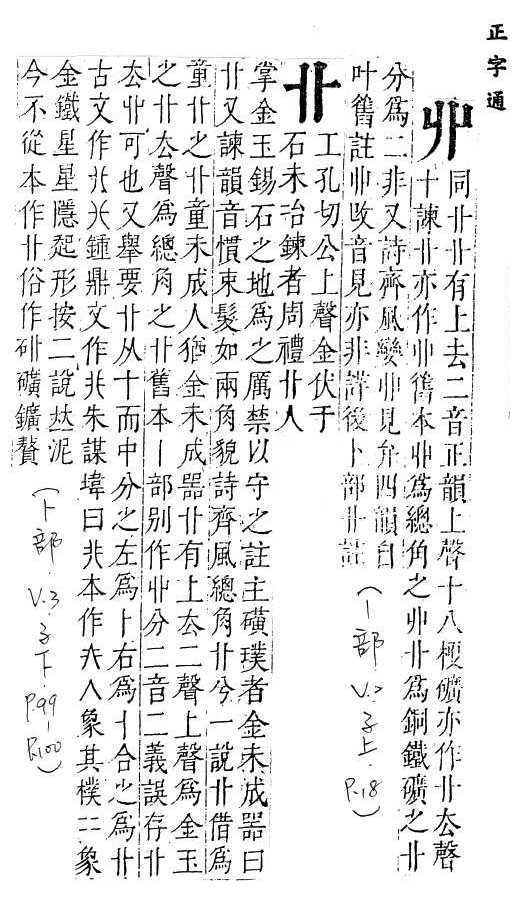 正字通
丱
同卝卝有上去二音正韻上聲十八梗礦亦作卝厺聲
十諫卝亦作丱舊本丱爲總角之丱卝爲銅鐵礦之卝
分爲二非又詩齊風孌丱見弁四韻自
叶舊註丱改音見亦非詳後卜部卝註
(丨部 V.2 子上 P.18)
卝
工孔切公上聲金伏于
石未治鍊者周禮卝人
掌金玉錫石之地爲之厲禁以守之註主磺璞者金未成器曰
卝又諫韻音慣束髮如兩角貌詩齊風總角卝兮一說卝借爲
童卝之卝童未成人猶金未成器卝有上厺二聲上聲爲金玉
之卝厺聲爲總角之卝舊本丨部別作丱分二音二義誤存卝
厺丱可也又舉要卝从十而中分之左爲卜右爲十合之爲卝
古文作鍾鼎文作朱謀㙔曰本作人象其樸二象
金鐵星星隱起形按二說泥
今不從本作卝俗作礦鑛贅
(卜部 V.3 子下 P.99-P.100)